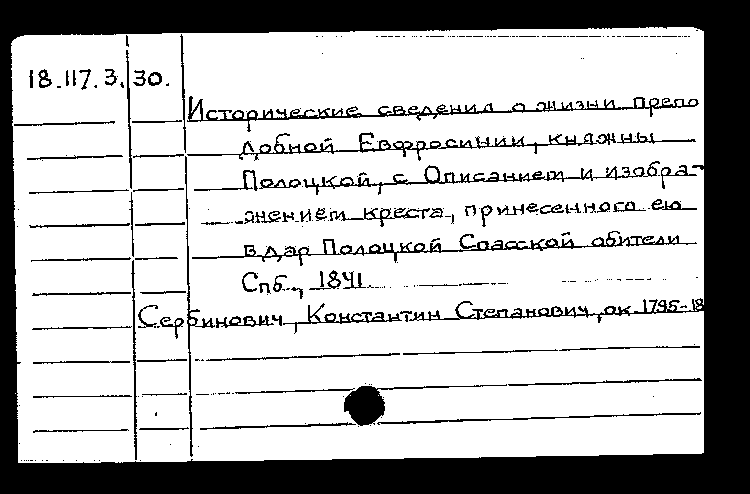 18.117.3.30.
Исторические сведения о жизни препо
добной Евфросинии, княжны
Полоцкой, с Описанием и изобра-
жением креста, принесенного ею
в дар Полоцкой Спасской обители
Спб., 1841
Сербинович, Константин Степанович, ок. 1795-18